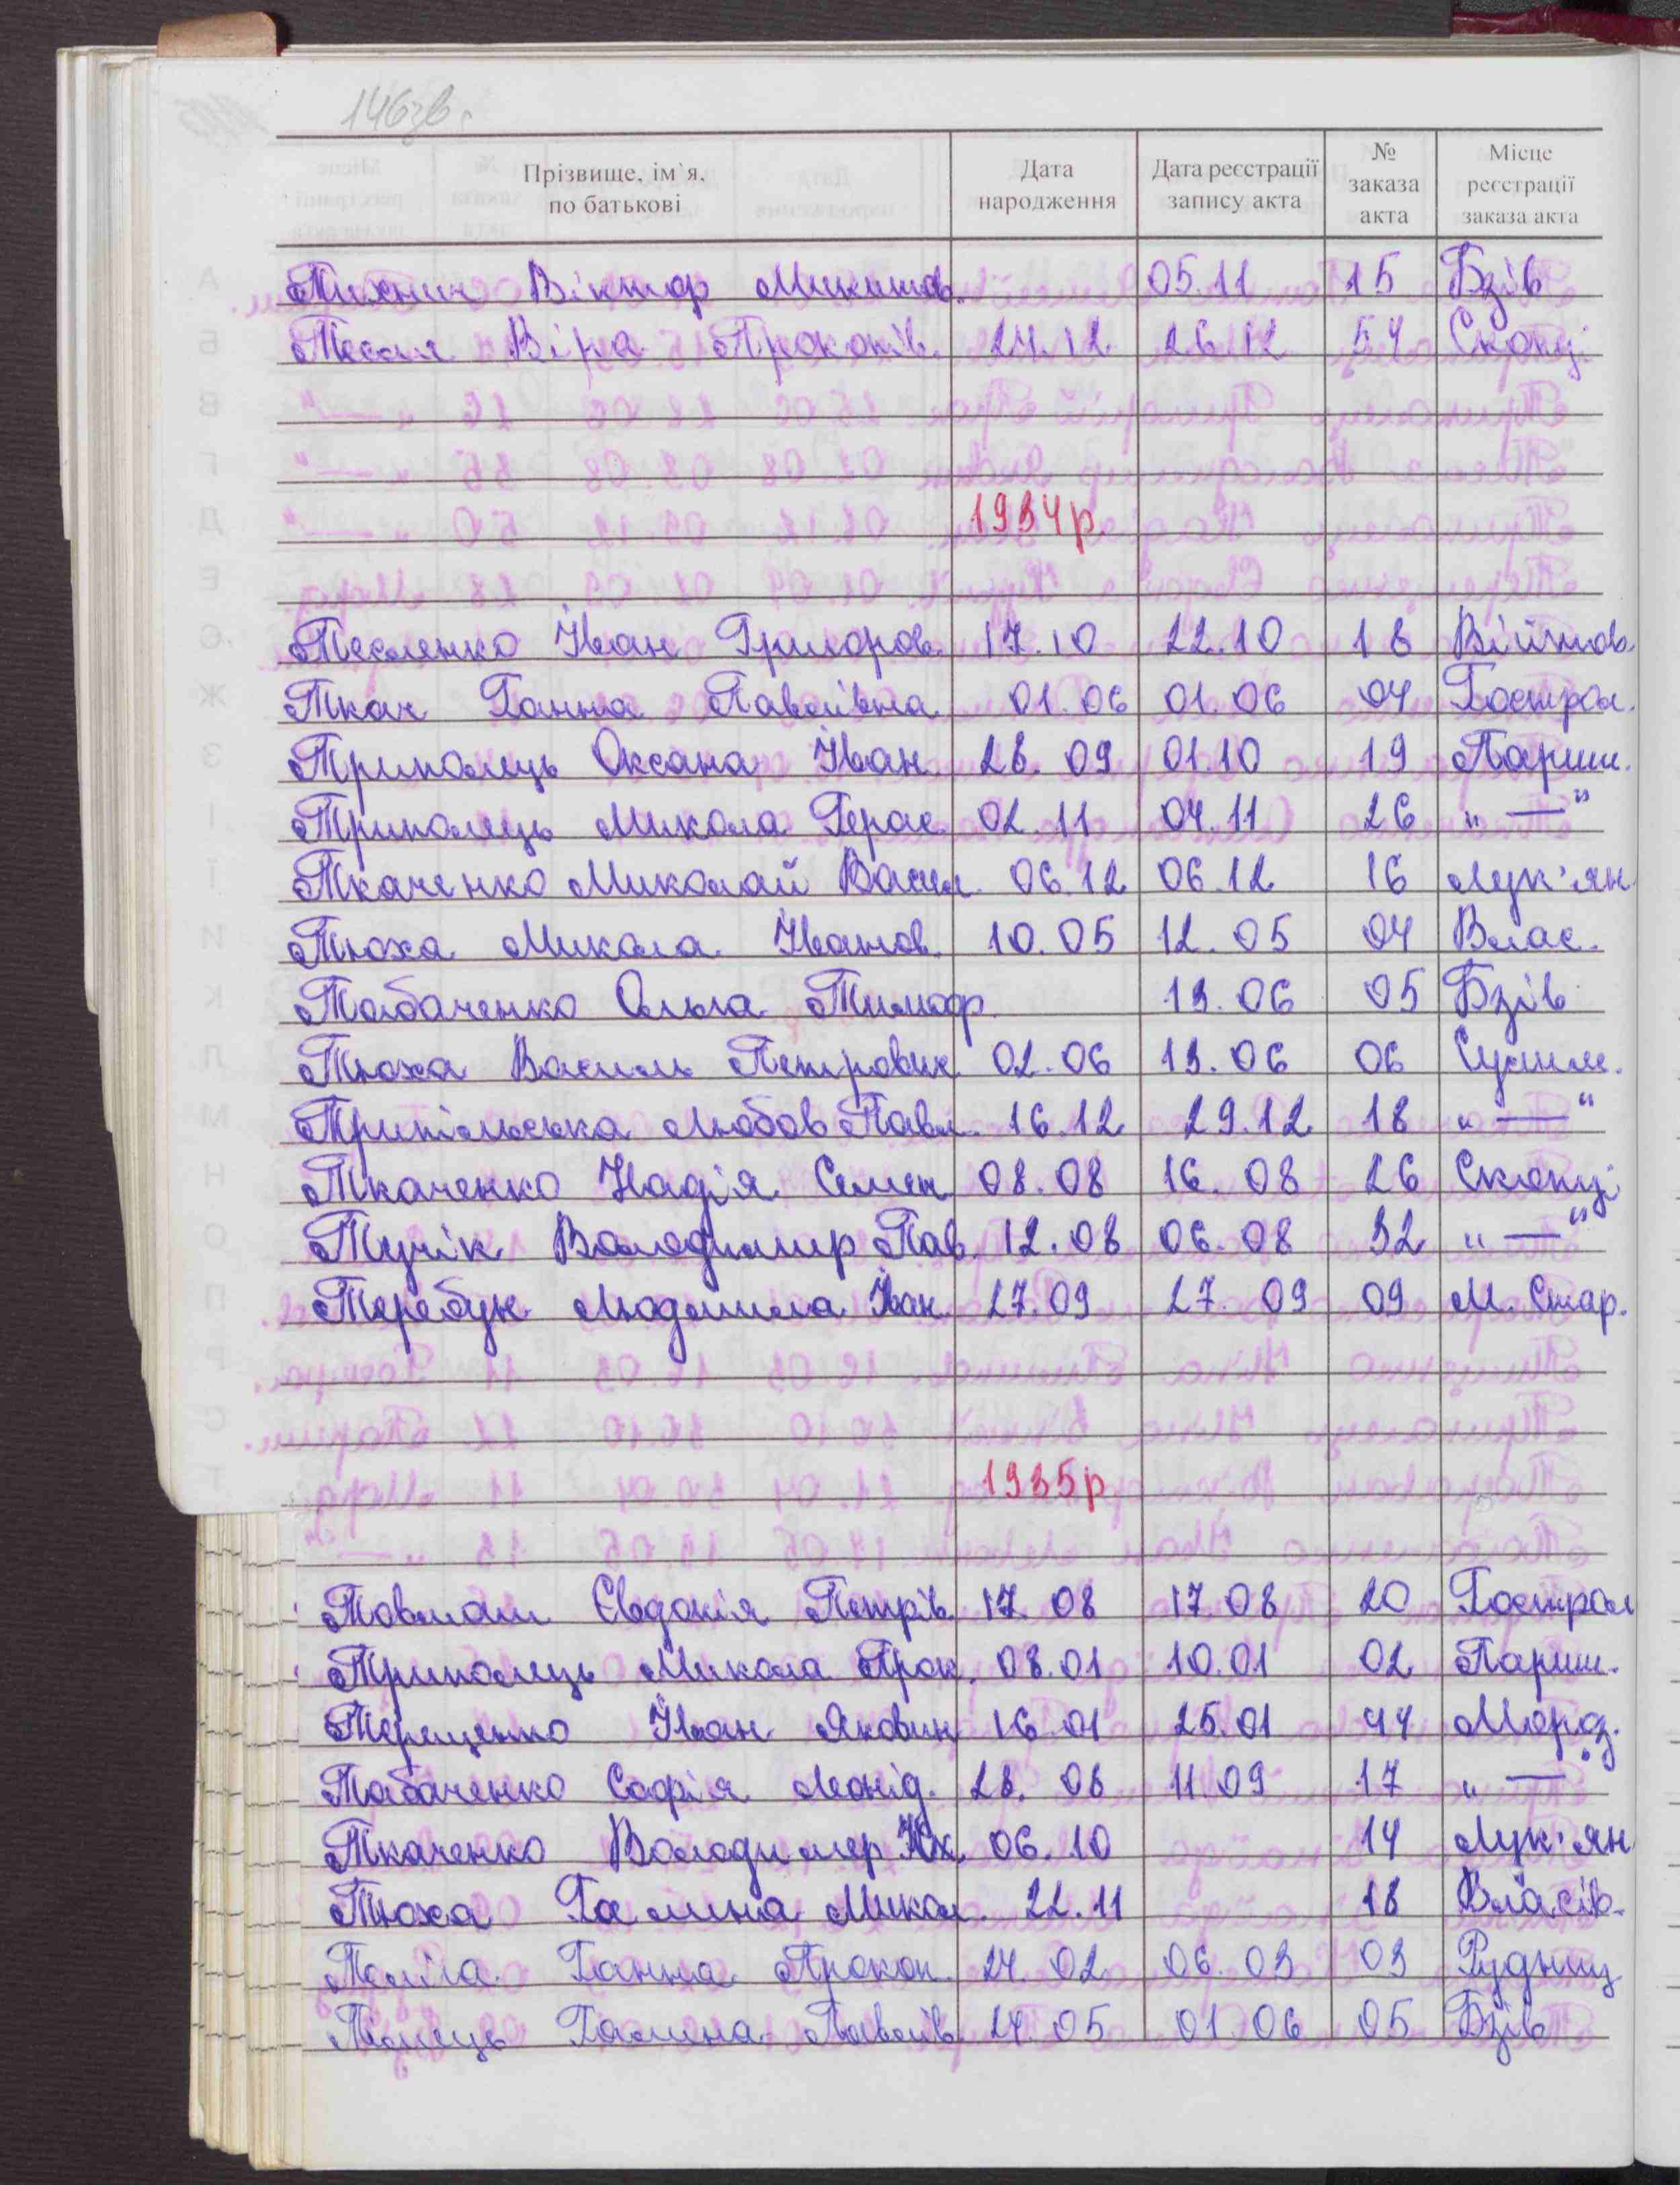 146зв.
Прізвище, ім`я, по батькові Дата народження Дата реєстрації запису акта № заказа акта Місце реєстрації заказа акта
Тихнич Віктор Микитов. 05.11 15 Бзів
Тесля Віра Прокопів. 24.12. 26.12 54 Скопці
1934р.
Тесленко Іван Григоров. 17.10 22.10 18 Війтов.
Ткач Ганна Павлівна 01.06 01.06 04 Гострол.
Триполець Оксана Іван. 28.09 01.10 19 Париш.
Триполець Микола Герас. 02.11 04.11 26 „ — "
Ткаченко Миколай Васил. 06.12 06.12 16 Лук'ян.
Тюха Микола Іванов. 10.05 12.05 04 Влас.
Табаченко Ольга Тимоф. 13.06 05 Бзів
Тюха Василь Петрович 02.06 13.06 06 Сулим.
Трипільська Любов Павл. 16.12 29.12 18 „ — "
Ткаченко Надія Семен. 08.08 16.08 26 Скопці
Тучік Володимир Пав. 12.08 06.08 32 „ — "
Теребун Людмила Іван. 27.09 27.09 09 М. Стар.
1935р
Товмаш Євдокія Петрів. 17.08 17.08 20 Гострол
Триполець Микола Прок. 08.01 10.01 02 Париш.
Терещенко Іван Якович 16.01 25.01 44 Мороз.
Табаченко Софія Леонід. 28.08 11.09 17 „ — "
Ткаченко Володимер Юх. 06.10 14 Лук'ян
Тюха Галина Микол. 22.11 18 Власів.
Ганна Прокоп. 24.02 06.03 03 Рудниц
Галина Павлів. 24.05 01.06 05 Бзів